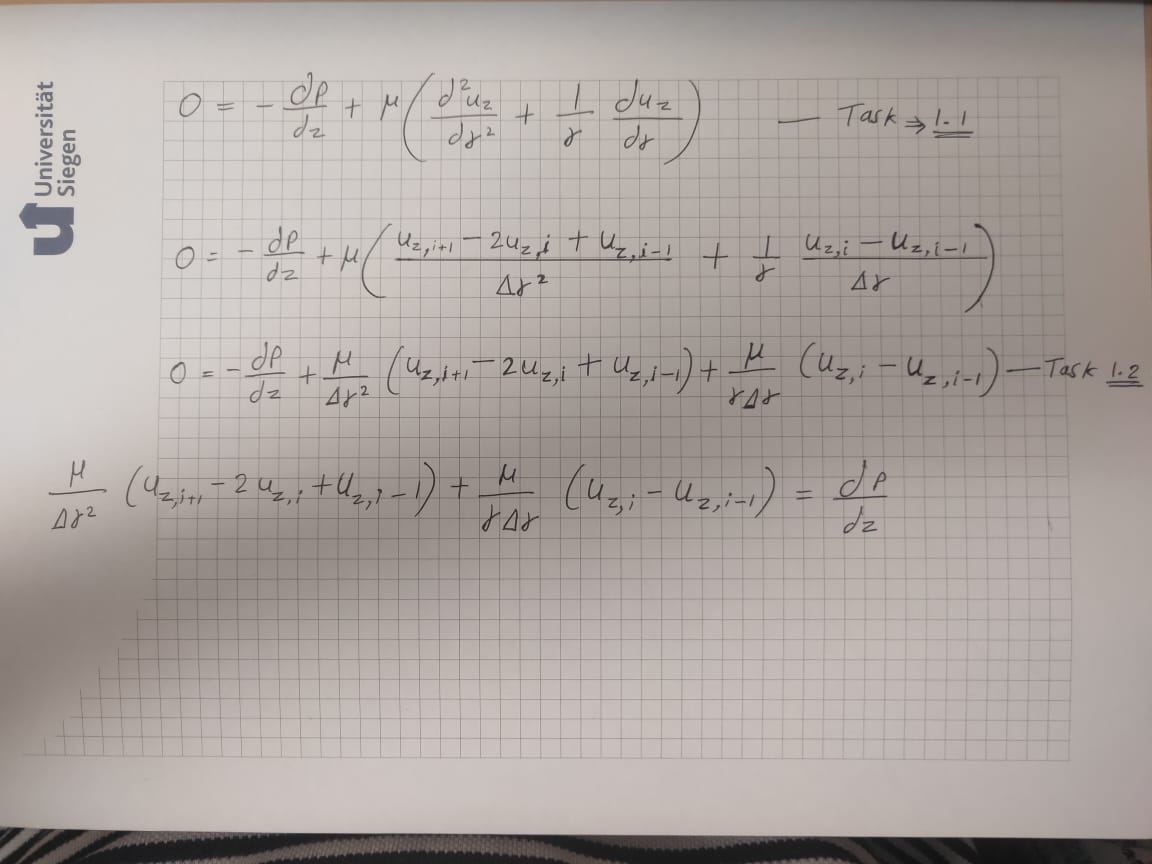 Universität
Siegen
0 = - dp/dz + μ( d²u_z/dr² + 1/r du_z/dr ) — Task ⇒ 1.1
0 = - dp/dz + μ( (u_{z,i+1} - 2u_{z,i} + u_{z,i-1})/Δr² + 1/r (u_{z,i} - u_{z,i-1})/Δr )
0 = - dp/dz + μ/Δr² (u_{z,i+1} - 2u_{z,i} + u_{z,i-1}) + μ/(rΔr) (u_{z,i} - u_{z,i-1}) — Task 1.2
μ/Δr² (u_{z,i+1} - 2u_{z,i} + u_{z,i-1}) + μ/(rΔr) (u_{z,i} - u_{z,i-1}) = dp/dz